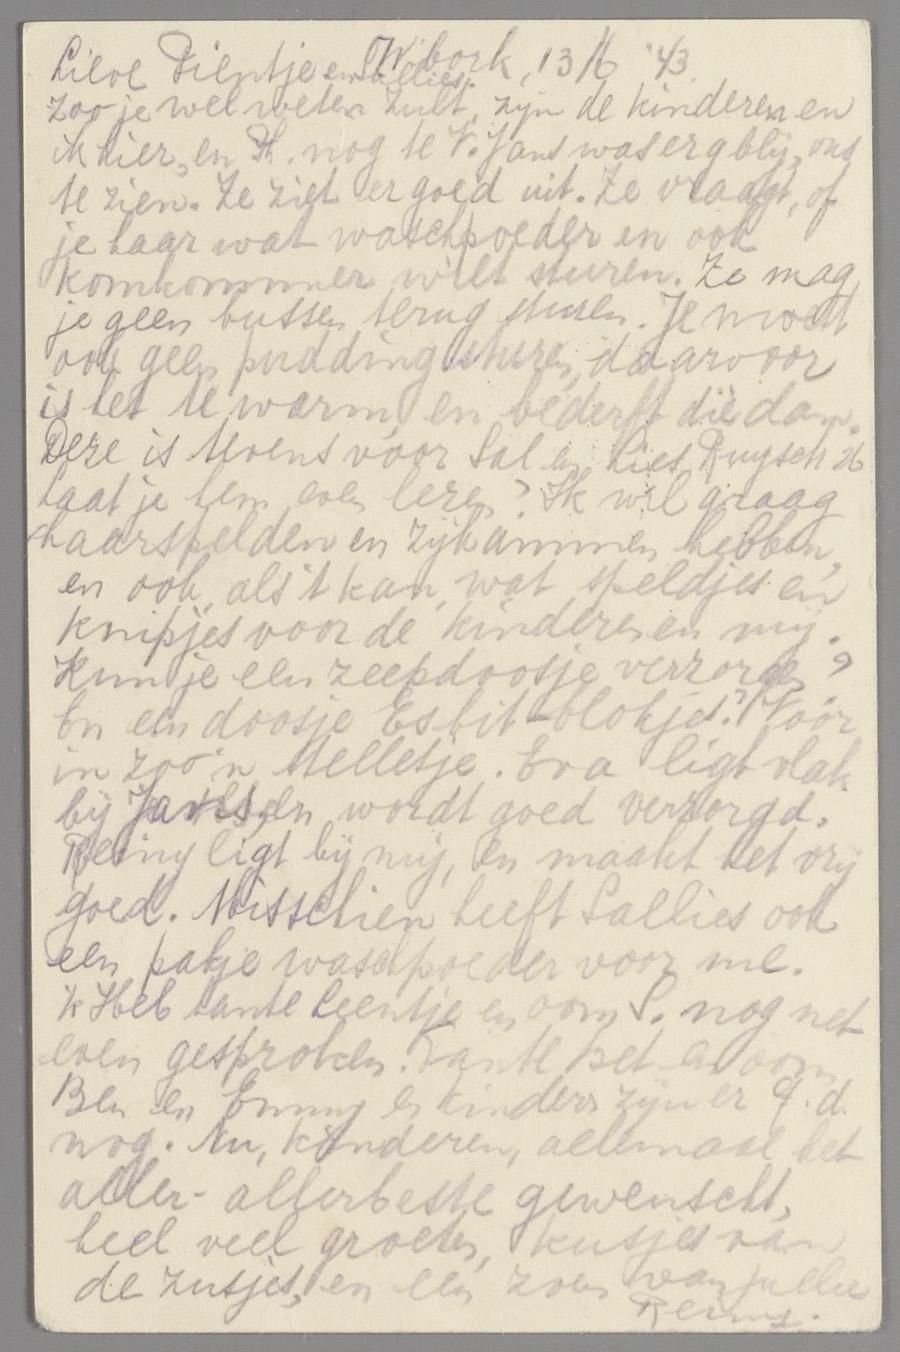 W.bork, 13/6 '43
Lieve Dientje en Sallies.
Zoo je wel weten zult, zijn de kinderen en
ik hier, en Th. nog te V. Jans was erg blij, ons
te zien. Ze ziet er goed uit. Ze vraagt, of
je haar wat waschpoeder en ook
komkommer wilt sturen. Ze mag
je geen bussen terug sturen. Je moet
ook geen pudding sturen, daarvoor
is het te warm, en bederft die dan.
Deze is tevens voor Sal en Lies Ruysch 26
Laat je hem even lezen? Ik wil graag
haarspelden en zijkammen hebben,
en ook, als 't kan, wat speldjes en
knipjes voor de kinderen en mij.
Kun je een zeepdoosje verzorgen?
En een doosje Esbit-blokjes? Voor
in zoo'n stelletje. Eva ligt vlak
bij Jans, en wordt goed verzorgd.
Reiny ligt bij mij, en maakt het vrij
goed. Misschien heeft Sallies ook
een pakje waschpoeder voor me.
'k Heb tante Leentje en oom S. nog net
even gesproken. Tante Bet en oom
Ben en Emmy en kinders zijn er G.d.
nog. Nu, kinderen, allemaal het
aller-allerbeste gewenscht,
heel veel groeten, kusjes van
de zusjes, en een zoen van jullie